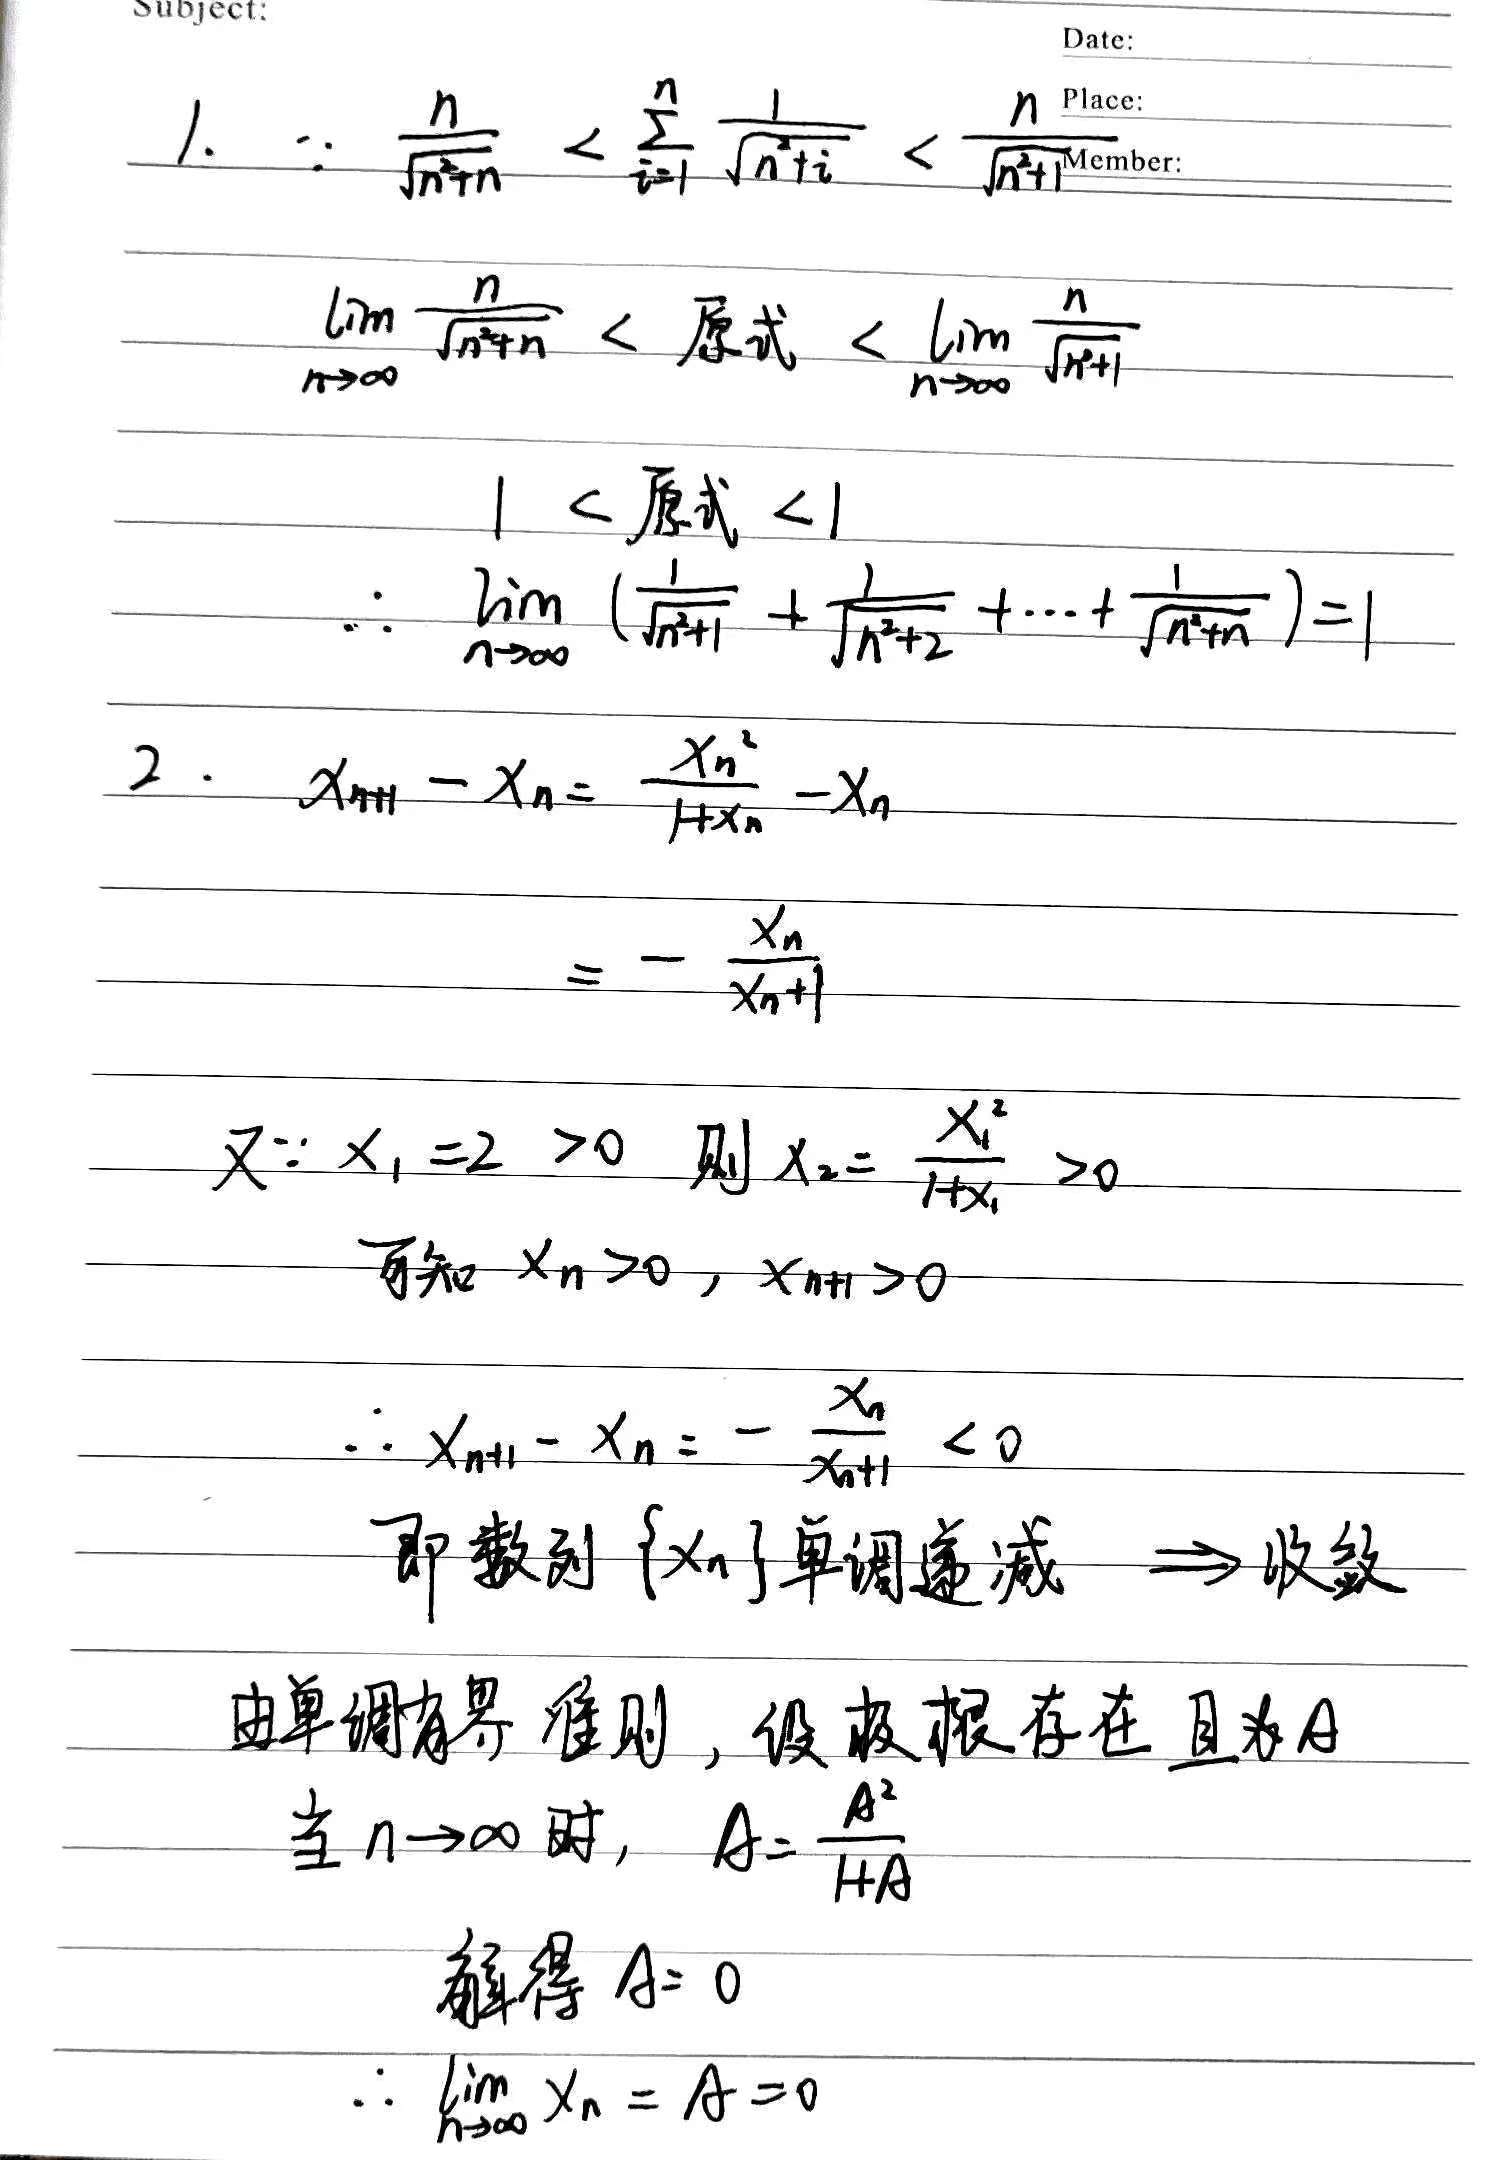 Subject:
Date:
Place:
Member:
1. ∵ n/√(n²+n) < ∑_{i=1}^{n} 1/√(n²+i) < n/√(n²+1)
lim_{n→∞} n/√(n²+n) < 原式 < lim_{n→∞} n/√(n²+1)
1 < 原式 < 1
∴ lim_{n→∞} (1/√(n²+1) + 1/√(n²+2) + ⋯ + 1/√(n²+n)) = 1
2. x_{n+1} - x_n = x_n²/(1+x_n) - x_n
= - x_n/(x_n+1)
又∵ x_1 = 2 > 0 则 x_2 = x_1²/(1+x_1) > 0
可知 x_n > 0, x_{n+1} > 0
∴ x_{n+1} - x_n = - x_n/(x_n+1) < 0
即数列{x_n}单调递减 ⇒ 收敛
由单调有界准则, 设极限存在且为A
当 n→∞ 时, A = A²/(1+A)
解得 A = 0
∴ lim_{n→∞} x_n = A = 0